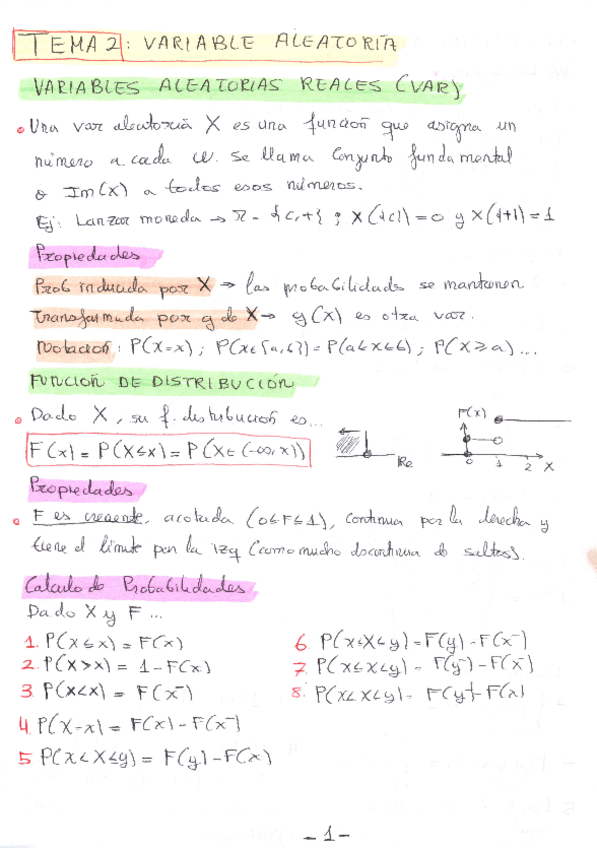 TEMA 2: VARIABLE ALEATORIA
VARIABLES ALEATORIAS REALES (VAR)
• Una var aleatoria X es una función que asigna un
número a cada w. Se llama Conjunto fundamental
o Im(X) a todos esos números.
Ej: Lanzar moneda → Ω = {c,+} ; X({c}) = 0 y X({+}) = 1
Propiedades
Prob inducida por X → las probabilidades se mantienen
Transformada por g de X → g(X) es otra var.
Notación: P(X=x) ; P(X∈[a,b]) = P(a≤X≤b) ; P(X≥a)...
FUNCIÓN DE DISTRIBUCIÓN
• Dado X, su f. distribución es...
F(x) = P(X≤x) = P(X∈(-∞,x))
Re
F(x)
0 1 2 X
Propiedades
• F es creciente, acotada (0≤F≤1), continua por la derecha y
tiene el límite por la izq (como mucho discontinua de saltos).
Calculo de Probabilidades
Dado X y F ...
1. P(X≤x) = F(x)
2. P(X>x) = 1-F(x)
3 P(X<x) = F(x⁻)
4. P(X=x) = F(x) - F(x⁻)
5 P(x<X≤y) = F(y) - F(x)
6. P(x≤X≤y) = F(y) - F(x⁻)
7. P(x≤X<y) = F(y⁻) - F(x⁻)
8. P(x<X<y) = F(y⁻) - F(x)
- 1 -